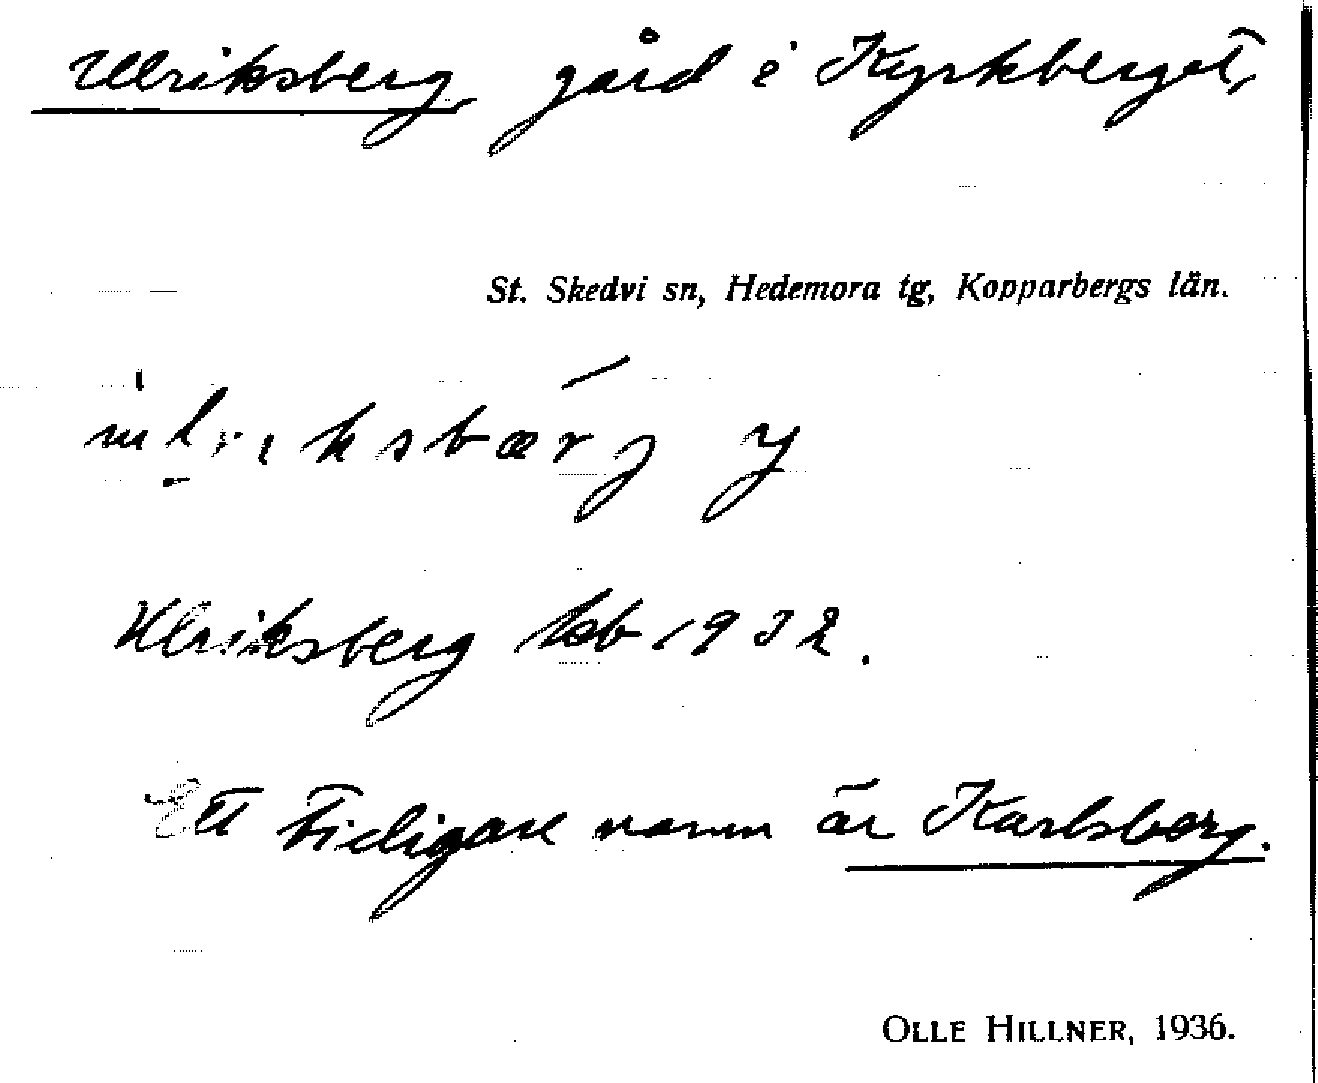 Ulriksberg gård i Kyrkberget,
St. Skedvi sn, Hedemora tg, Kopparbergs län.
ulriksbærj y
Ulriksberg kb 1932.
Ett tidigare namn är Karlsberg.
OLLE HILLNER, 1936.